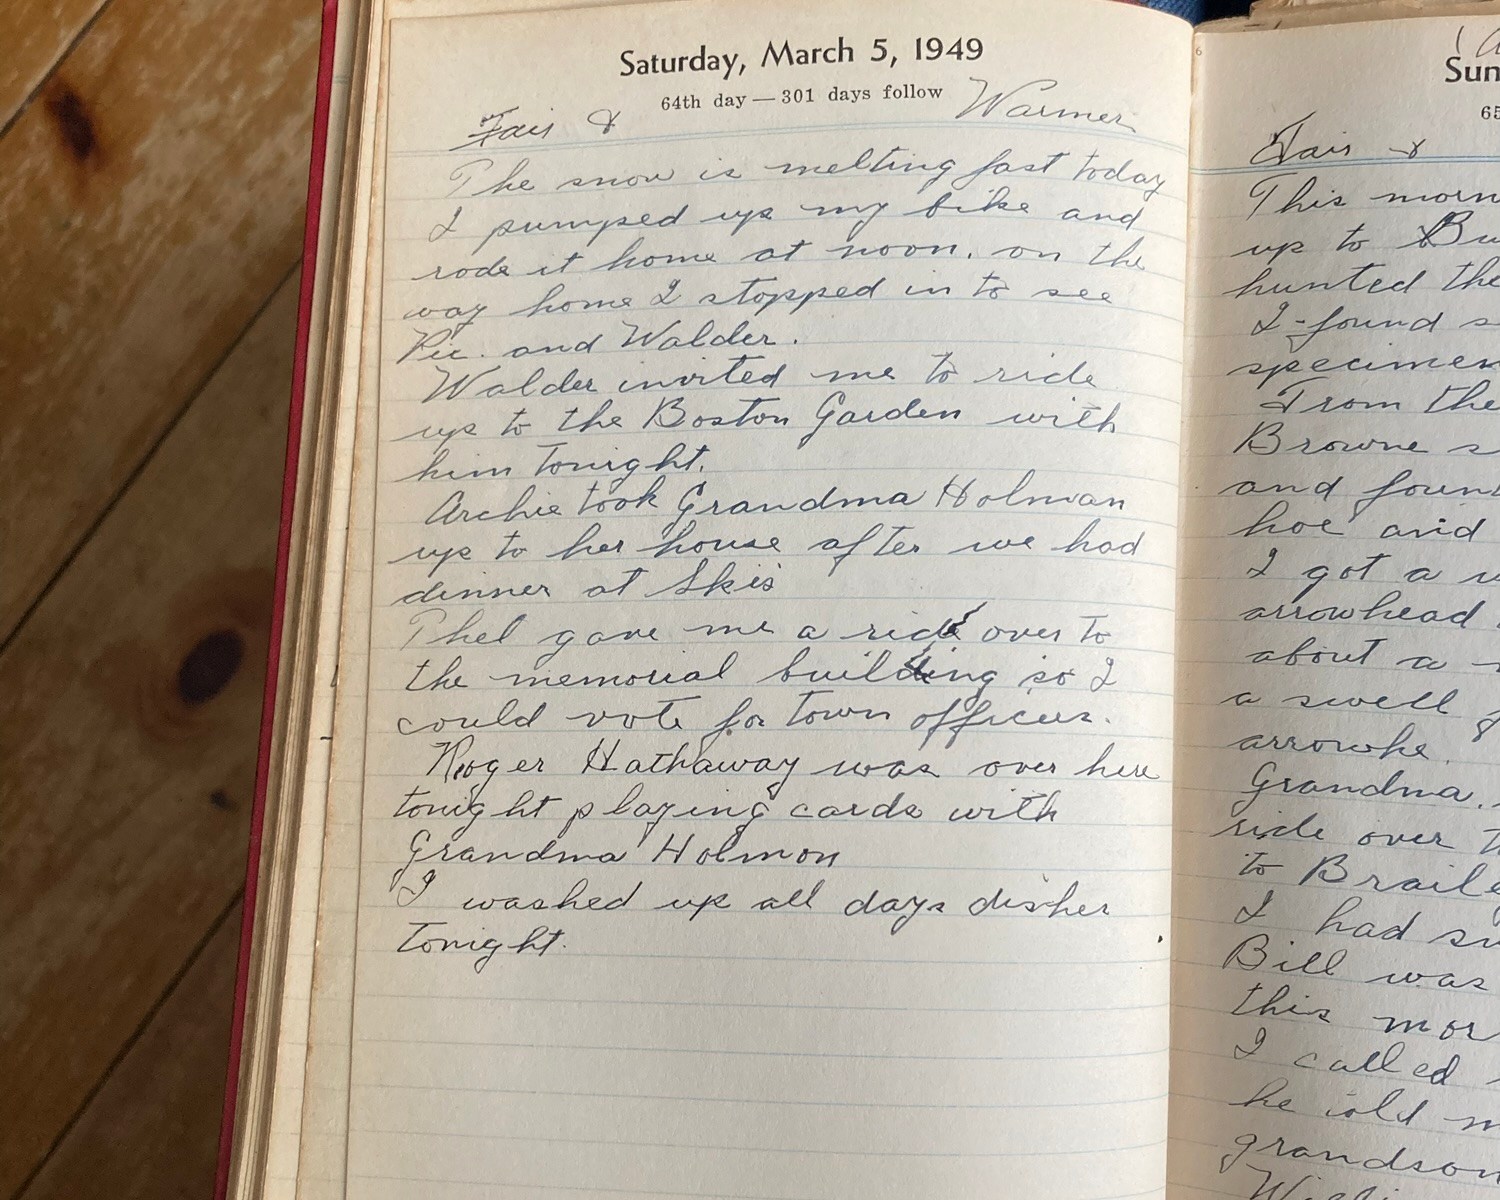 Saturday, March 5, 1949
64th day — 301 days follow
Fair & Warmer
The snow is melting fast today
I pumped up my bike and
rode it home at noon. on the
way home I stopped in to see
Pic. and Walder.
Walder invited me to ride
up to the Boston Garden with
him tonight.
Archie took Grandma Holman
up to her house after we had
dinner at Skis
Phel gave me a ride over to
the memorial building so I
could vote for town officers.
Roger Hathaway was over here
tonight playing cards with
Grandma Holmon
I washed up all days dishes
tonight.
6
Sun
65
Fair &
This morn
up to Bu
hunted the
I found s
specimen
From the
Browne s
and foun
hoe and
I got a
arrowhead
about a
a swell
arrowhe.
Grandma.
ride over t
to Braile
I had su
Bill was
this mor
I called
he told m
grandson